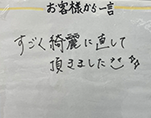 お客様から一言
すごく綺麗に直して
頂きました